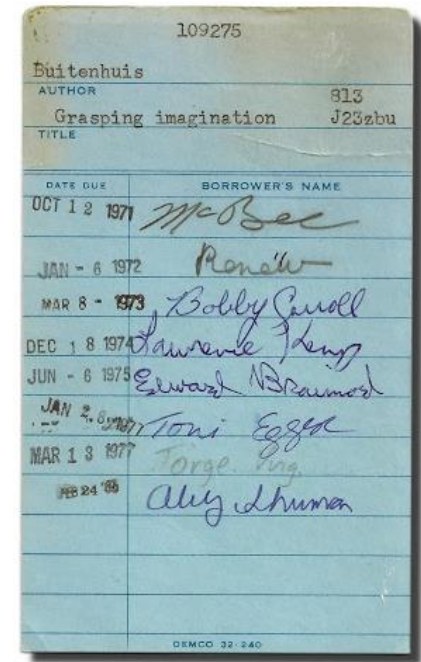 109275
Buitenhuis
AUTHOR 813
Grasping imagination J23zbu
TITLE
DATE DUE BORROWER'S NAME
OCT 12 1971 McBee
JAN - 6 1972 Renew
MAR 8 - 1973 Bobby Carroll
DEC 18 1974 Lawrence Kemp
JUN - 6 1975 Edward
JAN 2 1977 Toni Egger
MAR 13 1977
FEB 24 Shuman
DEMCO 32-240